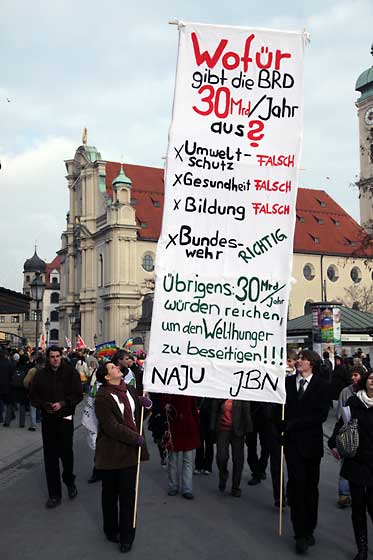 Wofür
gibt die BRD
30 Mrd/Jahr
aus?
x Umwelt-
schutz FALSCH
x Gesundheit FALSCH
x Bildung FALSCH
x Bundes-
wehr RICHTIG
Übrigens: 30 Mrd/Jahr
würden reichen,
um den Welthunger
zu beseitigen!!!
NAJU JBN